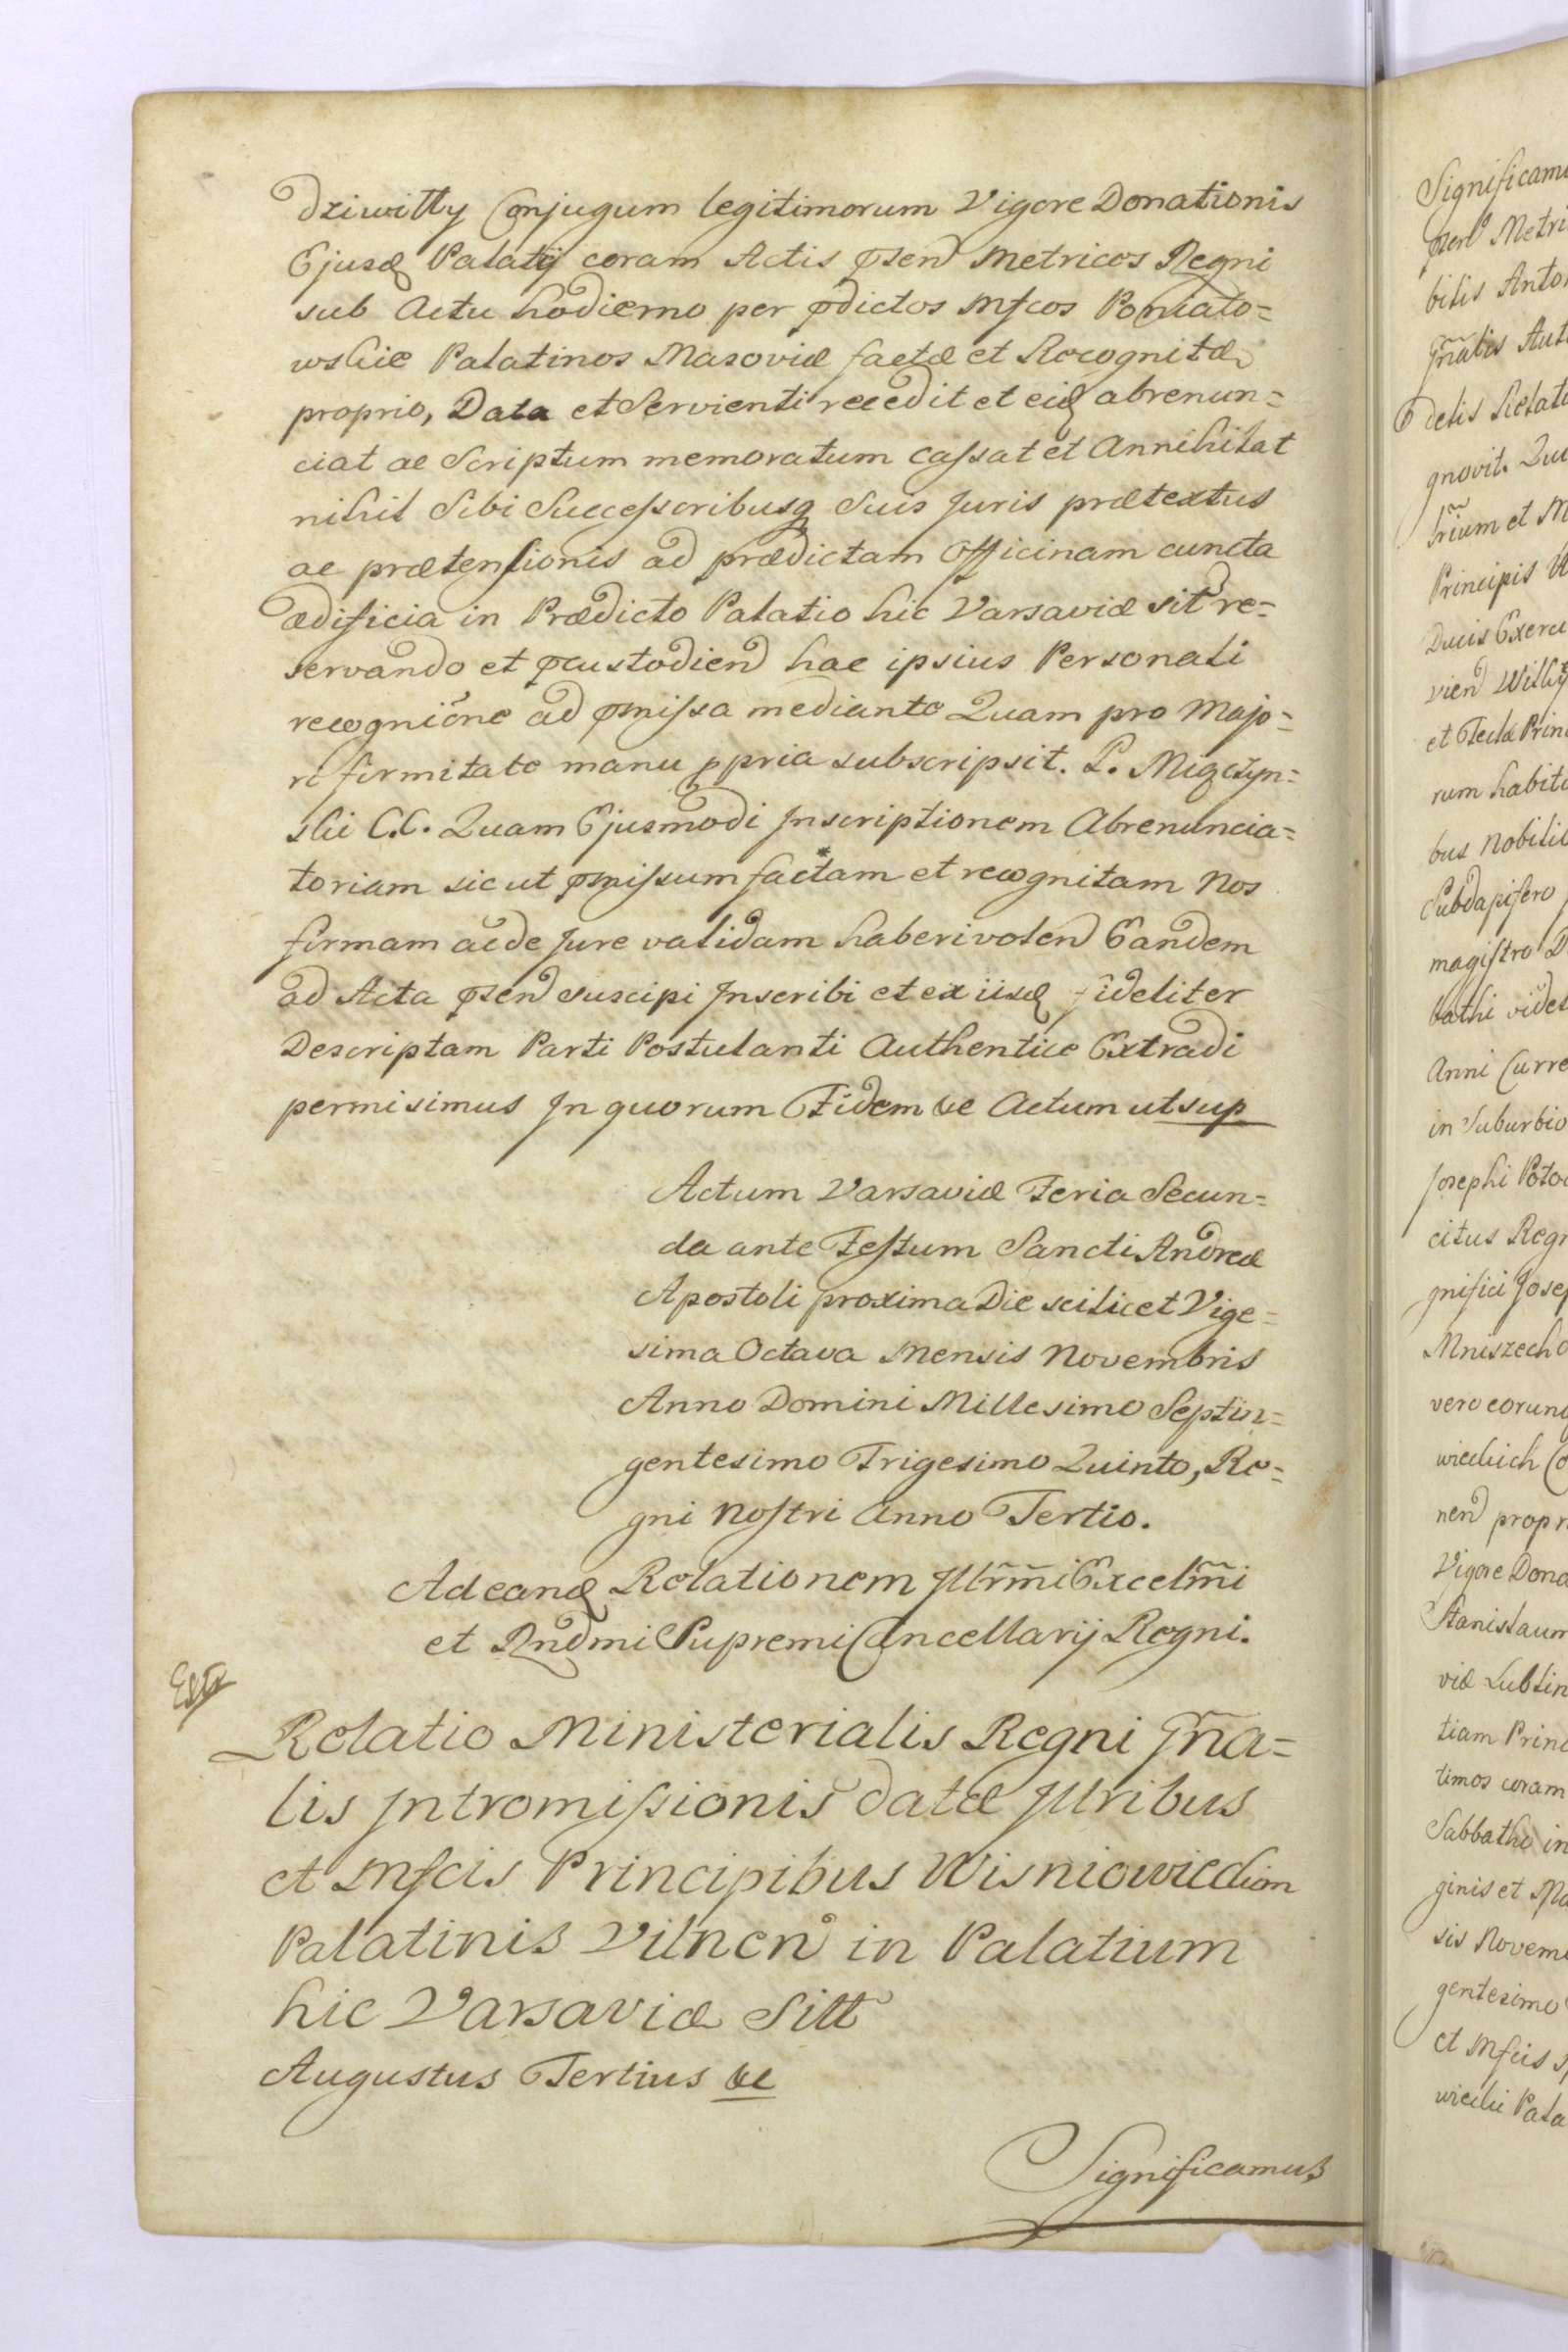 dziwiłły Conjugum legitimorum Vigore Donationis
Ejusd Palatij coram Actis pñsen Metricos Regni
sub Actu hodierno per pdictos Mfcos Poniato=
wskie Palatinos Masoviæ factæ et Recognitæ
proprio, Data et Servienti recedit et eid abrenun=
ciat ac Scriptum memoratum Cassat et Annihilat
nihil Sibi Successoribusq Suis Juris prætextus
ac prætensionis ad prædictam Officinam cuncta
ædificia in Prædicto Palatio hic Varsaviæ sit re=
servando et pcustodien hac ipsius Personali
recognióne ad pmissa mediante Quam pro Majo=
ri firmitate manu ppria subscripsit. P. Miączyn=
ski C.C. Quam Ejusmodi Inscriptionem Abrenuncia=
toriam sicut pmissum factam et recognitam Nos
firmam acde Jure validam haberi volen Eandem
ad Acta psen suscipi Inscribi et ex iisd fideliter
Descriptam Parti Postulanti Authentice Extradi
permisimus In quorum Fidem &c Actum ut sup
Actum Varsaviæ Feria Secun=
da ante Festum Sancti Andreæ
Apostoli proxima Die scilicet Vige=
sima Octava Mensis Novembris
Anno Domini Millesimo Septin=
gentesimo Trigesimo Quinto, Re=
gni Nostri Anno Tertio.
Ad eand Relationem Illrm̃i Excellm̃i
et Rndmi Supremi Cancellarij Regni.
Relatio Ministerialis Regni Gña=
lis Intromissionis datæ Illribus
et Mfcis Principibus Wisniowieckim
Palatinis Vilnen in Palatium
hic Varsaviæ Sitt
Augustus Tertius &c
Significamus
Metri
bilis Anto
gnovit.
Principis
rum habita
Subdapifero
magistro
Anni Curre
in Suburbio
Josephi Poto
citus Regn
gnifici Josep
Mniszech
nen propr
Vigore Dona
Stanislaum
viæ Lublin
tiam Princ
timos coram
Sabbatho in
ginis et Ma
sis Novem
gentesimo
et Mfcis